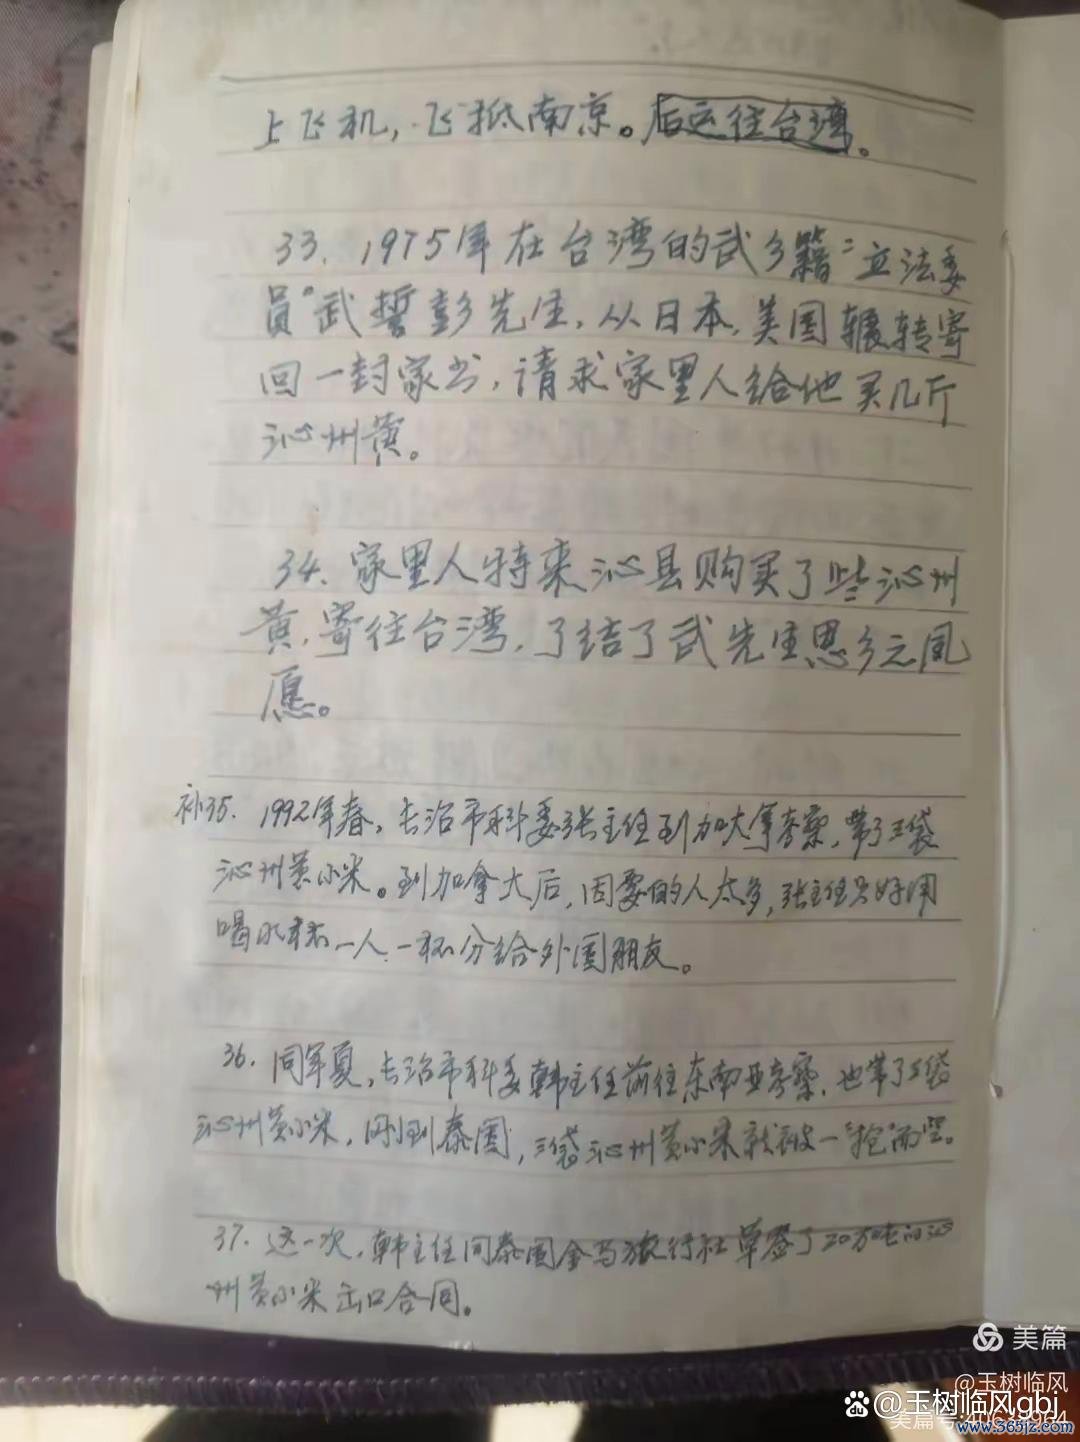 上飞机，飞抵南京。后运往台湾。
33. 1975年在台湾的武乡籍“立法委
员”武誓彭先生，从日本，美国辗转寄
回一封家书，请求家里人给他买几斤
沁州黄。
34. 家里人特来沁县购买了些沁州
黄，寄往台湾，了结了武先生思乡之夙
愿。
补35. 1992年春，长治市科委张主任到加大拿考察，带了三袋
沁州黄小米。到加拿大后，因要的人太多，张主任只好用
喝水杯一人一杯分给外国朋友。
36. 同年夏，长治市科委韩主任前往东南亚考察，也带了三袋
沁州黄小米，刚到泰国，三袋沁州黄小米就被一“抢”而空。
37. 这一次，韩主任同泰国金马旅行社草签了20万吨的沁
州黄小米出口合同。
美篇
@玉树临风
@玉树临风gbj
美篇号
www.365jz.com